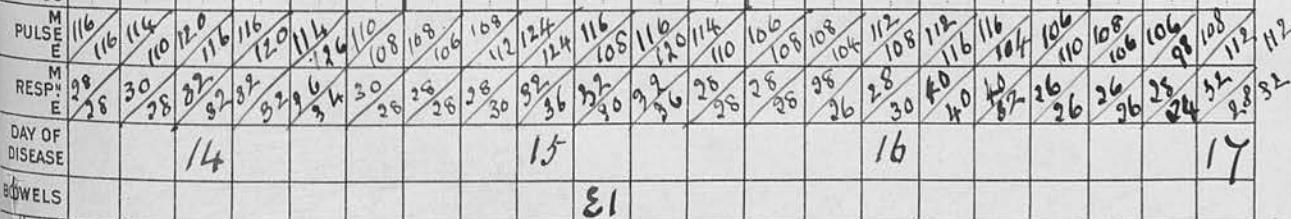 M
PULSE 116/116 114/110 120/116 116/120 114/126 110/108 108/106 108/112 124/124 116/108 116/120 114/110 106/108 108/104 112/108 112/116 116/104 106/110 108/106 106/98 108/112 112
E
M
RESPN 28/28 30/28 32/32 32/32 36/34 30/28 28/28 28/30 32/36 32/30 32/36 28/28 28/28 28/26 28/30 40/40 40/32 26/26 26/26 28/24 32/28 32
E
DAY OF
DISEASE 14 15 16 17
BOWELS E1